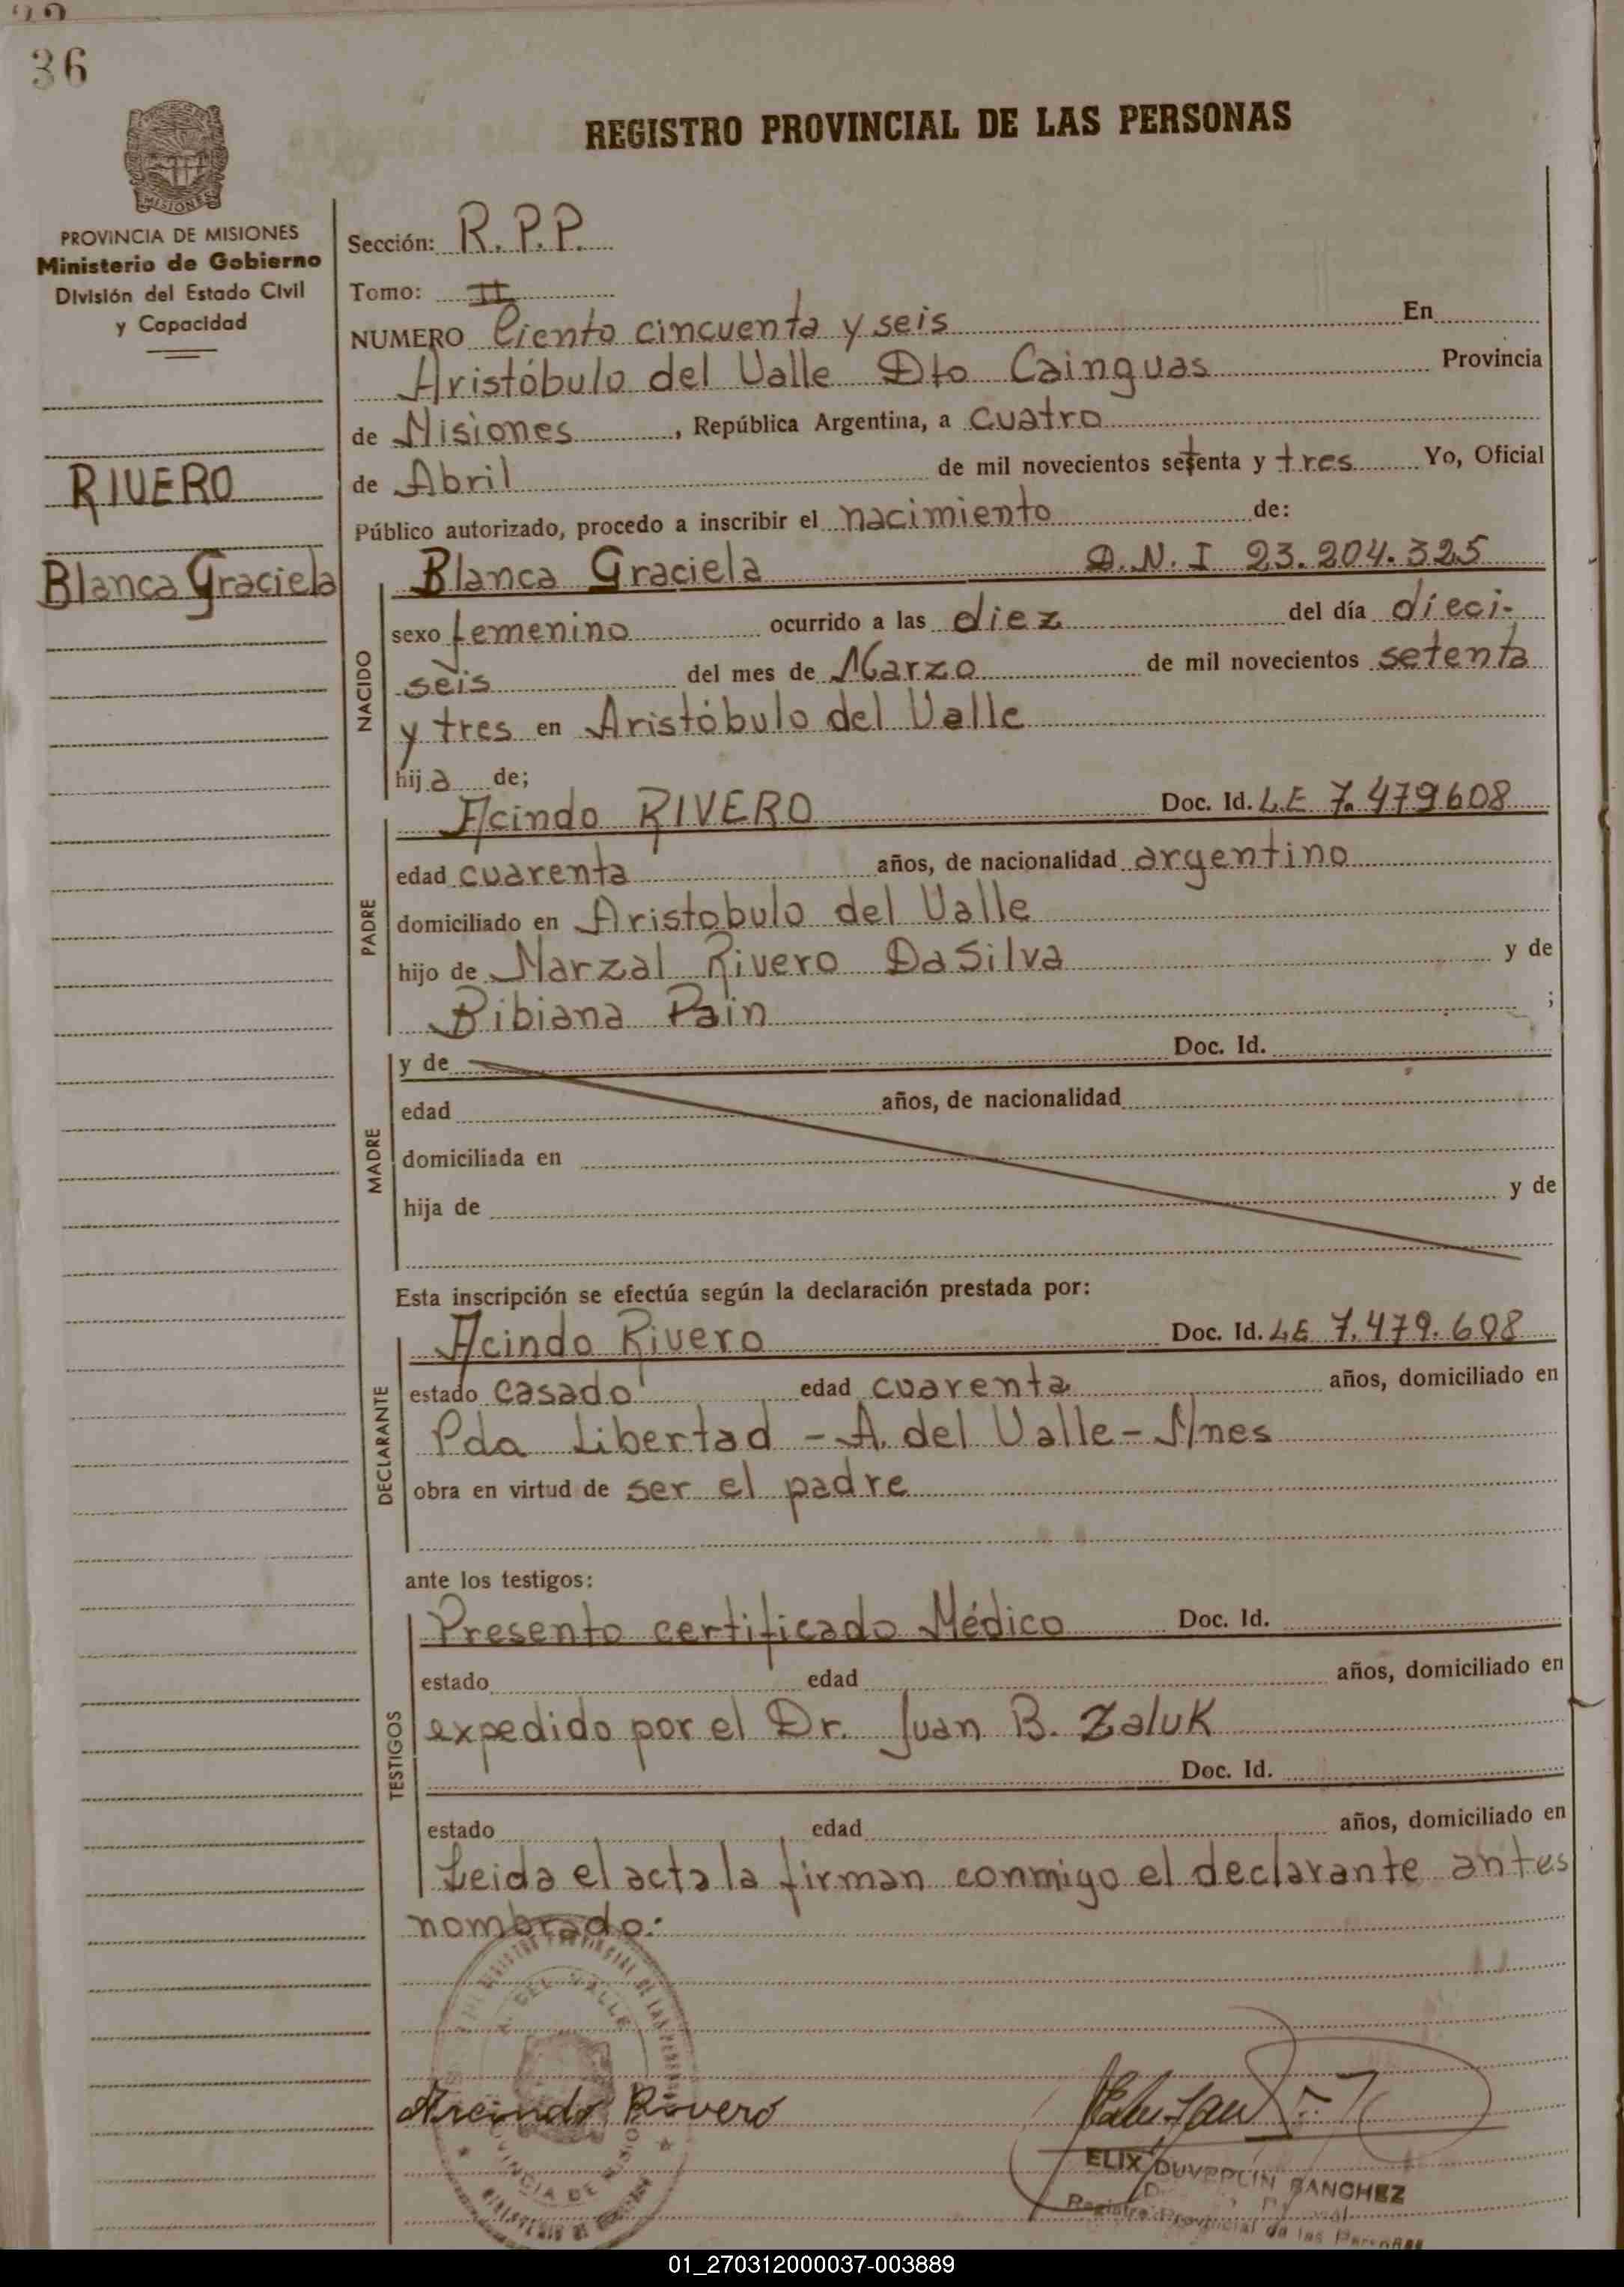 36
MISIONES
PROVINCIA DE MISIONES
Ministerio de Gobierno
División del Estado Civil
y Capacidad
RIVERO
Blanca Graciela
REGISTRO PROVINCIAL DE LAS PERSONAS
Sección: R.P.P.
Tomo: II
NUMERO Ciento cincuenta y seis En
Aristóbulo del Valle Dto Cainguas Provincia
de Misiones, República Argentina, a cuatro
de Abril de mil novecientos setenta y tres Yo, Oficial
Público autorizado, procedo a inscribir el nacimiento de:
Blanca Graciela D.N.I 23.204.325
NACIDO
sexo femenino ocurrido a las diez del día dieci-
seis del mes de Marzo de mil novecientos setenta
y tres en Aristóbulo del Valle
hija de;
Acindo RIVERO Doc. Id. L.E 7.479608
PADRE
edad cuarenta años, de nacionalidad argentino
domiciliado en Aristobulo del Valle
hijo de Marzal Rivero DaSilva y de
Bibiana Pain ;
MADRE
y de Doc. Id.
edad años, de nacionalidad
domiciliada en
hija de y de
Esta inscripción se efectúa según la declaración prestada por:
DECLARANTE
Acindo Rivero Doc. Id. LE 7.479.608
estado casado edad cuarenta años, domiciliado en
Pda Libertad - A. del Valle - Mnes
obra en virtud de ser el padre
ante los testigos:
TESTIGOS
Presento certificado Médico Doc. Id.
estado edad años, domiciliado en
expedido por el Dr. Juan B. Zaluk
Doc. Id.
estado edad años, domiciliado en
Leida el acta la firman conmigo el declarante antes
nombrado:
A. DEL VALLE
Arcindo Rivero
ELIX DUVERLIN SANCHEZ
Registro Provincial de las Personas
01_270312000037-003889